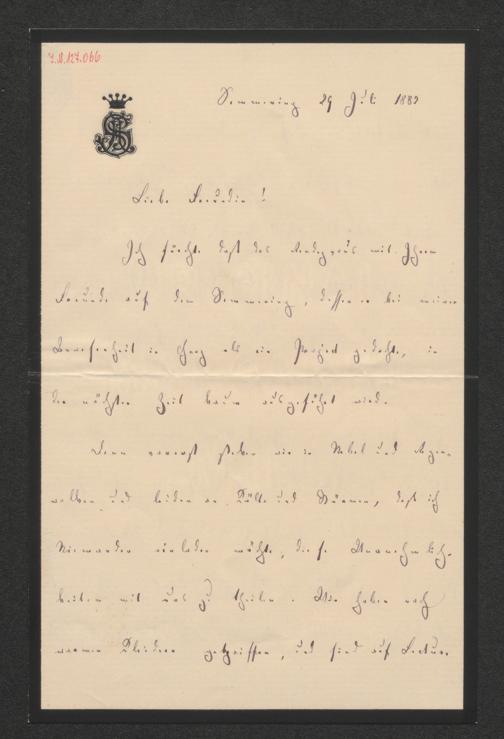 I.N.127.066
Semmering 29 Juli 1882
Liebe Freundin!
Ich fürchte daß das Rendezvous mit Ihrem
Freunde auf dem Semmering, dessen er bei meiner
Anwesenheit in als ein Project gedachte, in
der nächsten Zeit kaum ausgeführt wird.
Denn vorerst stecken wir in Nebel und Regen-
wolken und leiden an Kälte und Stürmen, daß ich
Niemanden einladen möchte, diese Unannehmlich-
keiten mit uns zu theilen. Wir haben nach
warmen Kleidern gegriffen, und sind auf Lecture